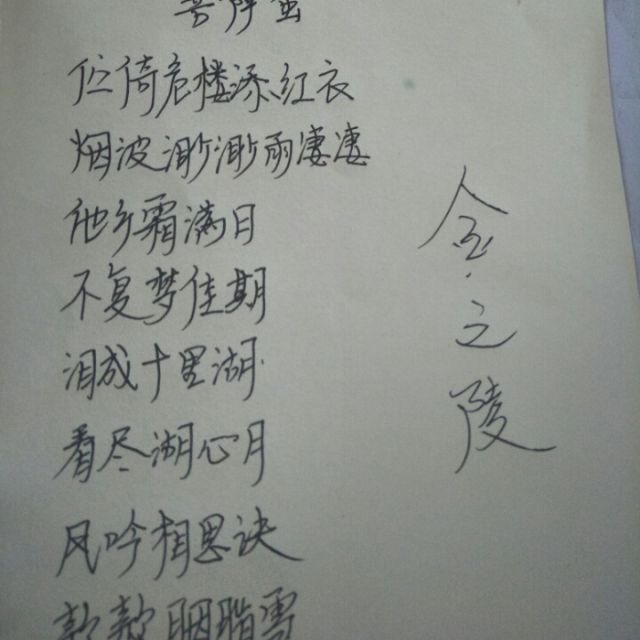 菩萨蛮
伫倚危楼添红衣
烟波渺渺雨凄凄
他乡霜满日
不复梦佳期
泪成十里湖
看尽湖心月
风吟相思诀
款款胭脂雪
金之陵